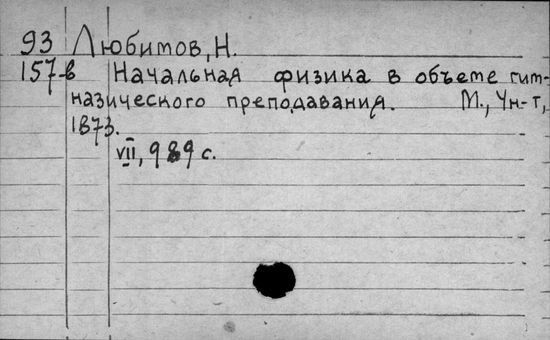 93 Любимов, Н.
157-в Начальная физика в объеме гим-
назического преподавания. М., Ун-т,
1873.
VII, 989 с.